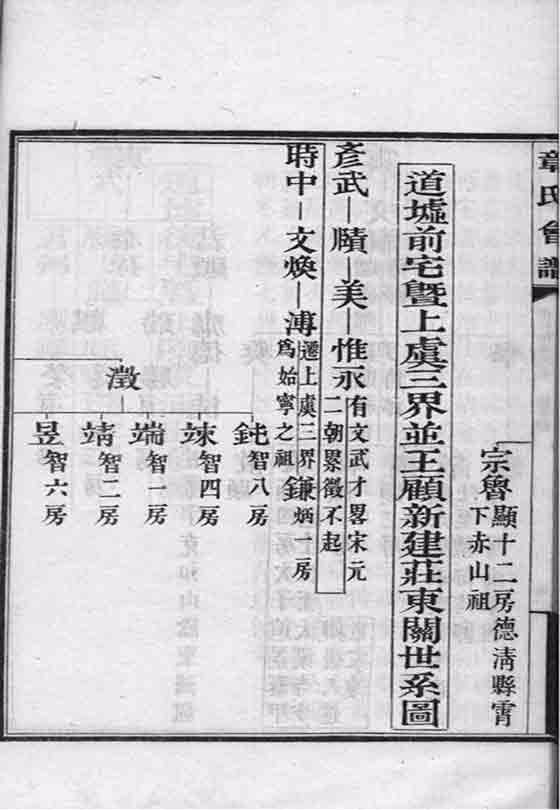 章氏會譜
宗魯 顯十二房德清縣霅
下赤山祖
道墟前宅曁上虞三界並王顧新建莊東關世系圖
彥武—贃—美—惟永 有文武才畧宋元
二朝累徵不起
時中—文煥—溥 遷上虞三界
爲始寧之祖
鎌 炳一房
澂
鈍 智八房
竦 智四房
端 智一房
靖 智二房
昱 智六房